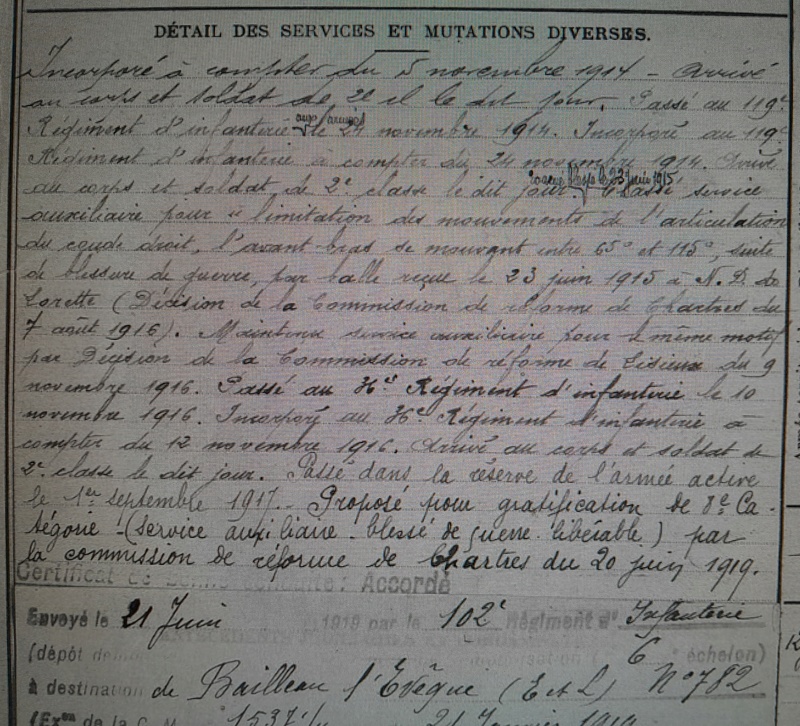 DÉTAIL DES SERVICES ET MUTATIONS DIVERSES.
Incorporé à compter du 5 novembre 1914 - Arrivé
au corps et soldat de 2e cl le dit jour. Passé au 119e
Régiment d'infanterie le 24 novembre 1914. Incorporé au 119e
Régiment d'infanterie à compter du 24 novembre 1914. Arrivé
23 juin 1915
au corps et soldat de 2e classe le dit jour. Classé service
auxiliaire pour "limitation des mouvements de l'articulation
du coude droit, l'avant bras se mouvant entre 65° et 115°, suite
de blessure de guerre, par balle reçue le 23 juin 1915 à N. D. de
Lorette (Décision de la Commission de réforme de Chartres du
7 août 1916). Maintenu service auxiliaire pour le même motif
par Décision de la Commission de réforme de Lisieux du 9
novembre 1916. Passé au 36e Régiment d'infanterie le 10
novembre 1916. Incorporé au 36e Régiment d'infanterie à
compter du 12 novembre 1916. Arrivé au corps et soldat de
2e classe le dit jour. Passé dans la réserve de l'armée active
le 1er septembre 1917. Proposé pour gratification de 8e Ca-
tégorie (service auxiliaire - blessé de guerre - libérable) par
la commission de réforme de Chartres du 20 juin 1919.
Certificat de bonne conduite: Accordé
Envoyé le 21 Juin 1919 par le 102e Régiment d'Infanterie
(dépôt 6 échelon)
à destination de Bailleau l'Evêque (E et L) N° 782